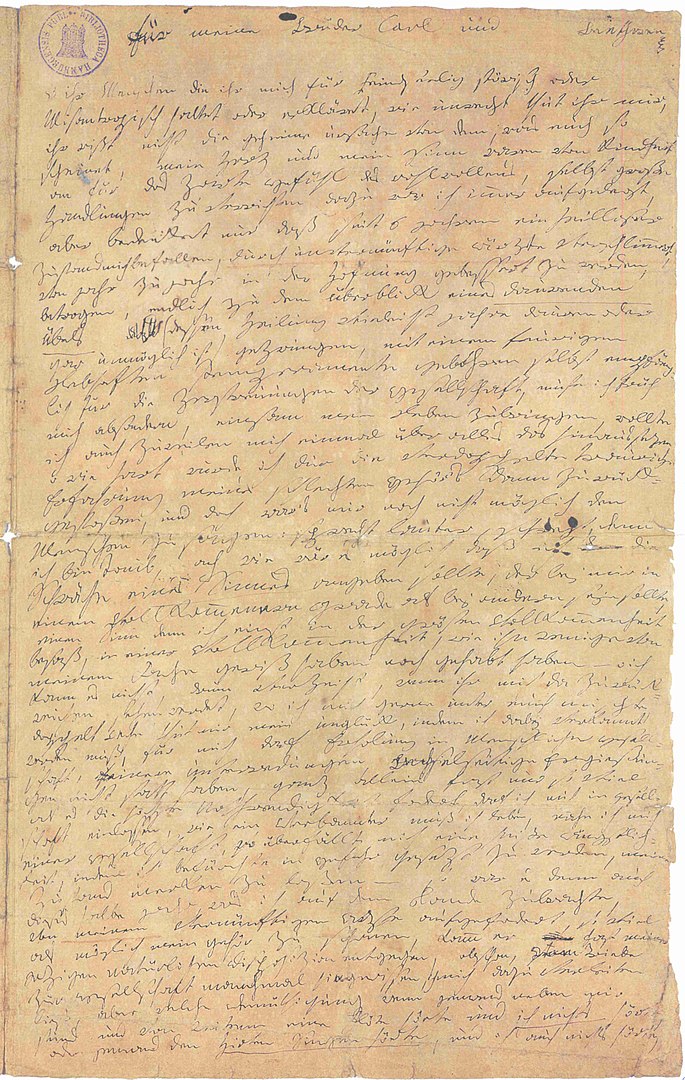 für meine Brüder Carl und Beethowen
o ihr Menschen die ihr mich für Feindseelig störisch oder
Misantropisch haltet oder erkläret, wie unrecht thut ihr mir,
ihr wißt nicht die geheime urßache von dem, was euch so
scheinet, mein Herz und mein Sinn waren von Kindheit
an für das Zarte gefühl des wohlwollens, selbst große
Handlungen zu verrichten dazu war ich immer aufgelegt,
aber bedenket nur daß seit 6 Jahren ein heilloser
Zustand mich befallen, durch unvernünftige ärzte verschlimmert,
von jahr zu jahr in der Hofnung gebessert zu werden,
betrogen, endlich zu dem überblick eines daurenden
übels (dessen Heilung vieleicht jahre dauren oder
gar unmöglich ist) gezwungen, mit einem feurigen
Lebhaften Temperamente gebohren selbst empfäng-
lich für die Zerstreuungen der Gesellschaft, muste ich früh
mich absondern, einsam mein Leben zubringen, wollte
ich auch zuweilen mich einmal über alles das hinaussezen,
o wie hart wurde ich dur die verdoppelte traurige
Erfahrung meines schlechten Gehör's dann zurück-
gestoßen, und doch war's mir noch nicht möglich den
Menschen zu sagen: sprecht lauter, schrejt, denn
ich bin Taub, ach wie wär es möglich daß ich die
Schwäche eines Sinnes angeben sollte; der bej mir in
einem Vollkommenern grade als bej andern sejn sollte,
einen Sinn denn ich einst in der größten Vollkommenheit
besaß, in einer Vollkommenheit, wie ihn wenige von
meinem Fache gewiß haben noch gehabt haben — o ich
kann es nicht, drum verzeiht, wenn ihr mich da zurück-
weichen sehen werdet, wo ich mich gerne unter euch mischte,
doppelt Wehe thut mir mein unglück, indem ich dabej verkannt
werden muß, für mich darf Erholung in Menschlicher Gesell-
schaft, feinere unterredungen, Wechselseitige Ergießun-
gen nicht statt haben, ganz allein fast nur so viel
als es die höchste Nothwendigkeit fodert, darf ich mich in gesell-
schaft einlassen, wie ein Verbannter muß ich leben, nahe ich mich
einer Gesellschaft, so überfällt mich eine heiße ängstlich-
keit, indem ich befürchte in Gefahr gesezt zu werden, meinen
Zustand merken zu laßen — so war es denn auch
dieses halbe jahr, was ich auf dem Lande zubrachte,
von meinem Vernünftigen Arzte aufgefodert, so viel
als möglich mein Gehör zu schonen, kamm er fast meiner
jezigen natürlichen Disposizion entgegen, obschon, vom Triebe
zur Gesellschaft manchmal hingerissen, ich mich dazu verleiten
ließ, aber welche Demüthigung wenn jemand neben mir
stund und von weitem eine Flöte hörte und ich nichts hörte
oder jemand den Hirten Singen hörte, und ich auch nichts hörte,